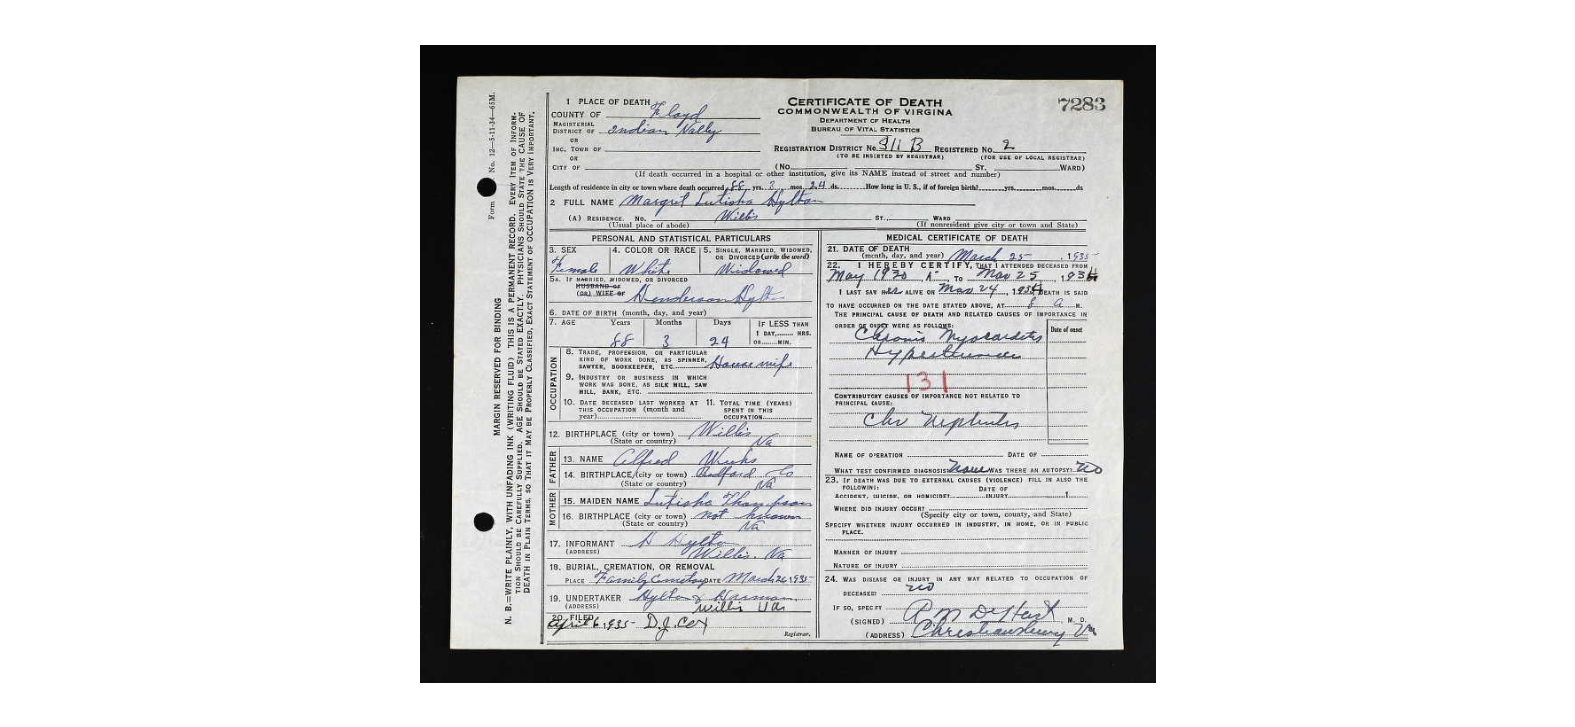 Form No. 12—5-11-34—65M.
MARGIN RESERVED FOR BINDING
N. B.—WRITE PLAINLY, WITH UNFADING INK (WRITING FLUID) THIS IS A PERMANENT RECORD. EVERY ITEM OF INFORM-
TION SHOULD BE CAREFULLY SUPPLIED. AGE SHOULD BE STATED EXACTLY. PHYSICIANS SHOULD STATE THE CAUSE OF
DEATH IN PLAIN TERMS, SO THAT IT MAY BE PROPERLY CLASSIFIED. EXACT STATEMENT OF OCCUPATION IS VERY IMPORTANT.
1 PLACE OF DEATH
COUNTY OF Floyd
MAGISTERIAL
DISTRICT OF Indian Valley
OR
INC. TOWN OF
OR
CITY OF
CERTIFICATE OF DEATH
COMMONWEALTH OF VIRGINIA
DEPARTMENT OF HEALTH
BUREAU OF VITAL STATISTICS
7283
REGISTRATION DISTRICT No. 311 B REGISTERED No. 2
(TO BE INSERTED BY REGISTRAR) (FOR USE OF LOCAL REGISTRAR)
(No. ST. WARD)
(If death occurred in a hospital or other institution, give its NAME instead of street and number)
Length of residence in city or town where death occurred 88 yrs. 3 mos. 24 ds. How long in U. S., if of foreign birth? yrs. mos. ds
2 FULL NAME Margret Lutisha Hylton
(A) RESIDENCE. No. Willis ST., WARD
(Usual place of abode) (If nonresident give city or town and State)
PERSONAL AND STATISTICAL PARTICULARS
3. SEX 4. COLOR OR RACE 5. SINGLE, MARRIED, WIDOWED,
OR DIVORCED (write the word)
Female White Widowed
5A. IF MARRIED, WIDOWED, OR DIVORCED
HUSBAND OF
(OR) WIFE OF Henderson Hylton
6. DATE OF BIRTH (month, day, and year)
7. AGE Years Months Days IF LESS THAN
1 DAY, HRS.
88 3 24 OR MIN.
OCCUPATION
8. TRADE, PROFESSION, OR PARTICULAR
KIND OF WORK DONE, AS SPINNER,
SAWYER, BOOKKEEPER, ETC. House wife
9. INDUSTRY OR BUSINESS IN WHICH
WORK WAS DONE, AS SILK MILL, SAW
MILL, BANK, ETC.
10. DATE DECEASED LAST WORKED AT
THIS OCCUPATION (month and
year)
11. TOTAL TIME (YEARS)
SPENT IN THIS
OCCUPATION
12. BIRTHPLACE (city or town) Willis
(State or country) Va
FATHER
13. NAME Alfred Weeks
14. BIRTHPLACE (city or town) Bedford Co
(State or country) Va
MOTHER
15. MAIDEN NAME Lutisha Thompson
16. BIRTHPLACE (city or town) not known
(State or country) Va
17. INFORMANT H Hylton
(ADDRESS) Willis, Va
18. BURIAL, CREMATION, OR REMOVAL
PLACE Family Cemetery DATE March 26, 1935
19. UNDERTAKER Hylton & Harman
(ADDRESS) Willis Va
20. FILED
April 6, 1935 D.J. Cox
Registrar.
MEDICAL CERTIFICATE OF DEATH
21. DATE OF DEATH
(month, day, and year) March 25 , 1935
22. I HEREBY CERTIFY, THAT I ATTENDED DECEASED FROM
May 1930 TO Mar 25, 193
I LAST SAW HER ALIVE ON Mar 24, 193 DEATH IS SAID
TO HAVE OCCURRED ON THE DATE STATED ABOVE, AT 8 A M.
THE PRINCIPAL CAUSE OF DEATH AND RELATED CAUSES OF IMPORTANCE IN
ORDER OF ONSET WERE AS FOLLOWS:
Date of onset
Chronic Myocarditis
Hypertension
131
CONTRIBUTORY CAUSES OF IMPORTANCE NOT RELATED TO
PRINCIPAL CAUSE:
Chr Nephritis
NAME OF OPERATION DATE OF
WHAT TEST CONFIRMED DIAGNOSIS? None WAS THERE AN AUTOPSY? No
23. IF DEATH WAS DUE TO EXTERNAL CAUSES (VIOLENCE) FILL IN ALSO THE
FOLLOWING:
ACCIDENT, SUICIDE, OR HOMICIDE? DATE OF INJURY 1
WHERE DID INJURY OCCUR?
(Specify city or town, county, and State)
SPECIFY WHETHER INJURY OCCURRED IN INDUSTRY, IN HOME, OR IN PUBLIC
PLACE.
MANNER OF INJURY
NATURE OF INJURY
24. WAS DISEASE OR INJURY IN ANY WAY RELATED TO OCCUPATION OF
DECEASED? no
IF SO, SPECIFY
(SIGNED) A M DeHart M. D.
(ADDRESS) Christiansburg Va